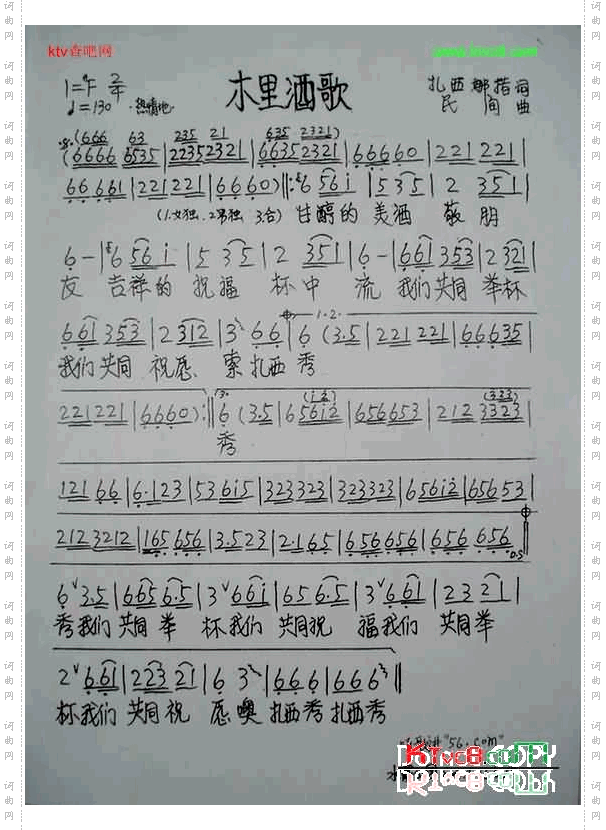 ktv查吧网 www.ktvc8.com
1=F 2/4 木里酒歌 扎西娜措词
♩=130 热情地 民间曲
(666 63 235 21 635 2321)
(6666 6535 | 2235 2321 | 6635 2321 | 66660 | 221 221 |
66661 | 221 221 | 6660) ‖: 6 561 | 5 35 | 2 351 |
(1.女独、2.男独 3.合) 甘醇的 美酒 敬朋
6 - | 6 561 | 5 35 | 2 351 | 6 - | 661 353 | 2 321 |
友 吉祥的 祝福 杯中 流 我们共同 举杯
1.2.
661 353 | 2 312 | 3 66 | 6 (3.5 | 221 221 | 66635 |
我们共同 祝愿 索扎西 秀
3. (i 2) (323)
221 221 | 6660) :‖ 6 (3.5 | 6 5612 | 656653 | 212 3323 |
秀
121 66 | 6.123 | 53 6i5 | 323323 | 323323 | 656i2 | 65653 |
2123212 | 165 656 | 3.523 | 2.165 | 656656 | 656 656 ‖
0.5
6 3.5 | 665 6.5 | 3 661 | 65 6.5 | 3 661 | 23 21 |
秀我们 共同举 杯我们 共同祝 福我们 共同举
2 661 | 223 21 | 6 3 | 666 | 666 ‖
杯我们 共同祝 愿噢 扎西秀扎西秀
"56.com"
KTvc8.com
COPY
词曲网